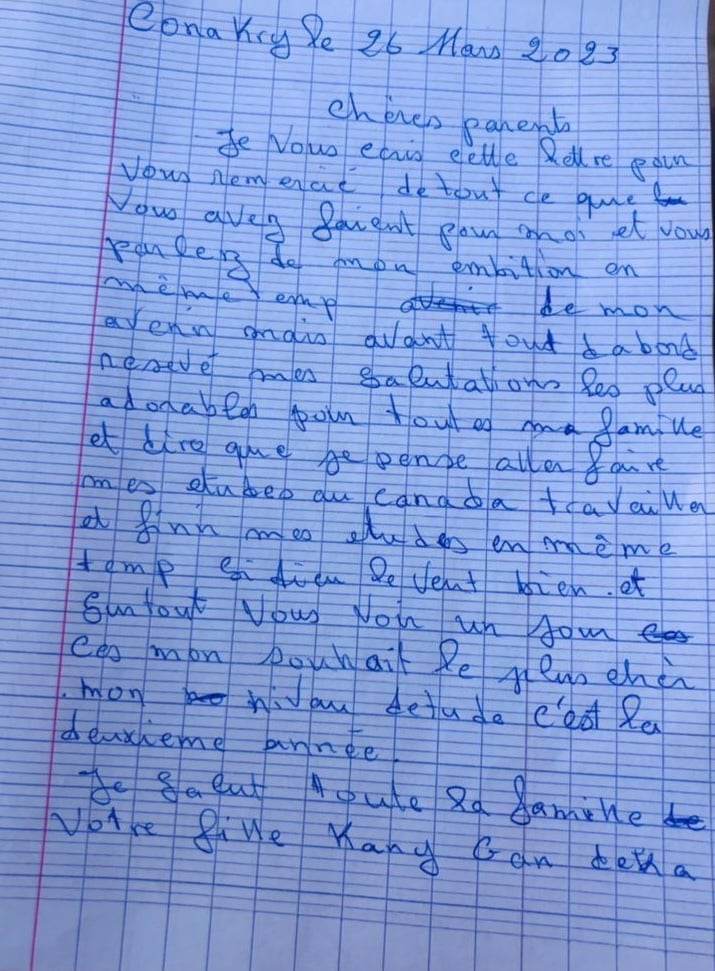 Conakry le 26 Mars 2023
chères parents
Je Vous ecris cette lettre pour
Vous remercié de tout ce que
Vous avez faient pour moi et vous
parlez de mon embition en
même temp de mon
avenir mais avant tout d'abord
resevé mes salutations les plus
adorables pour toutes ma famille
et dire que je pense aller faire
mes etudes au canada travailler
et finir mes etudes en même
temp si dieu le veut bien. et
surtout Vous voir un jour
Ces mon souhait le plus chèr
. mon nivau detude c'est la
deuxieme année.
Je salut toute la famille
Votre fille Kany